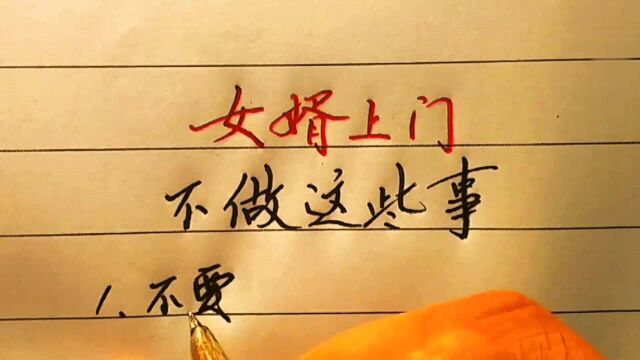 女婿上门
不做这些事
1、不要